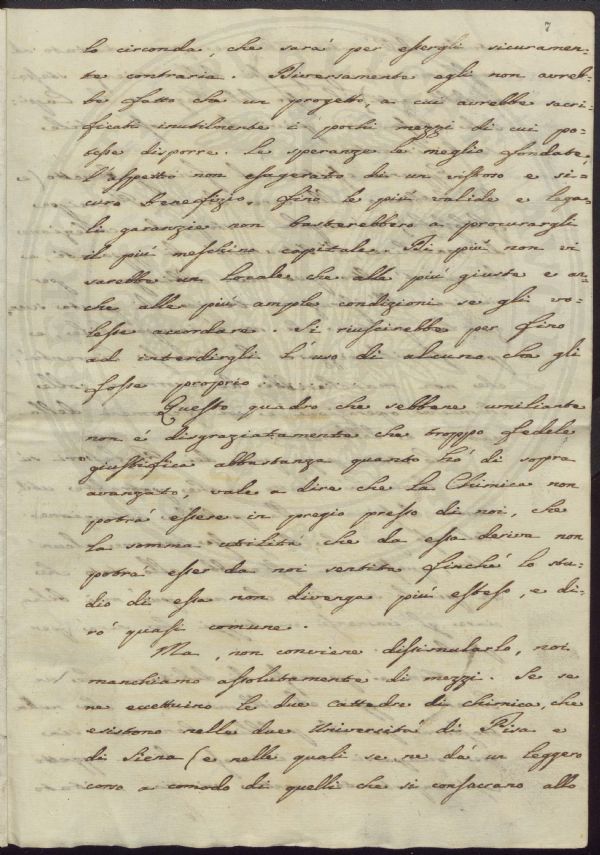 7
lo circonda, che sará per essergli sicuramen-
te contraria. Diversamente egli non avreb-
be fatto che un progetto, a cui avrebbe sacri-
ficati inutilmente i pochi mezzi di cui po-
tesse disporre. Le speranze le meglio fondate,
l'aspetto non esagerato di un vistoso e si-
curo benefizio, fino le più valide e lega-
li garanzie non basterebbero a procurargli
il più meschino capitale. Di più non vi
sarebbe un locale che alle più giuste e an-
che alle più ample condizioni se gli vo-
lesse accordare. Si riuscirebbe per fino
ad interdirgli l'uso di alcuno che gli
fosse proprio.
Questo quadro che sebbene umiliante
non é disgraziatamente che troppo fedele
giustifica abbastanza quanto hó di sopra
avanzato, vale a dire che la Chimica non
potrá essere in pregio presso di noi, che
la somma utilitá che da essa deriva non
potrá esser da noi sentita finché lo stu-
dio di essa non divenga più esteso, e di-
ró quasi comune.
Ma, non conviene dissimularlo, noi
manchiamo assolutamente di mezzi. Se se
ne eccettuino le due Cattedre di chimica, che
esistono nelle due Universitá di Pisa e
di Siena (e nelle quali se ne dá un leggero
corso a comodo di quelli che si consacrano allo